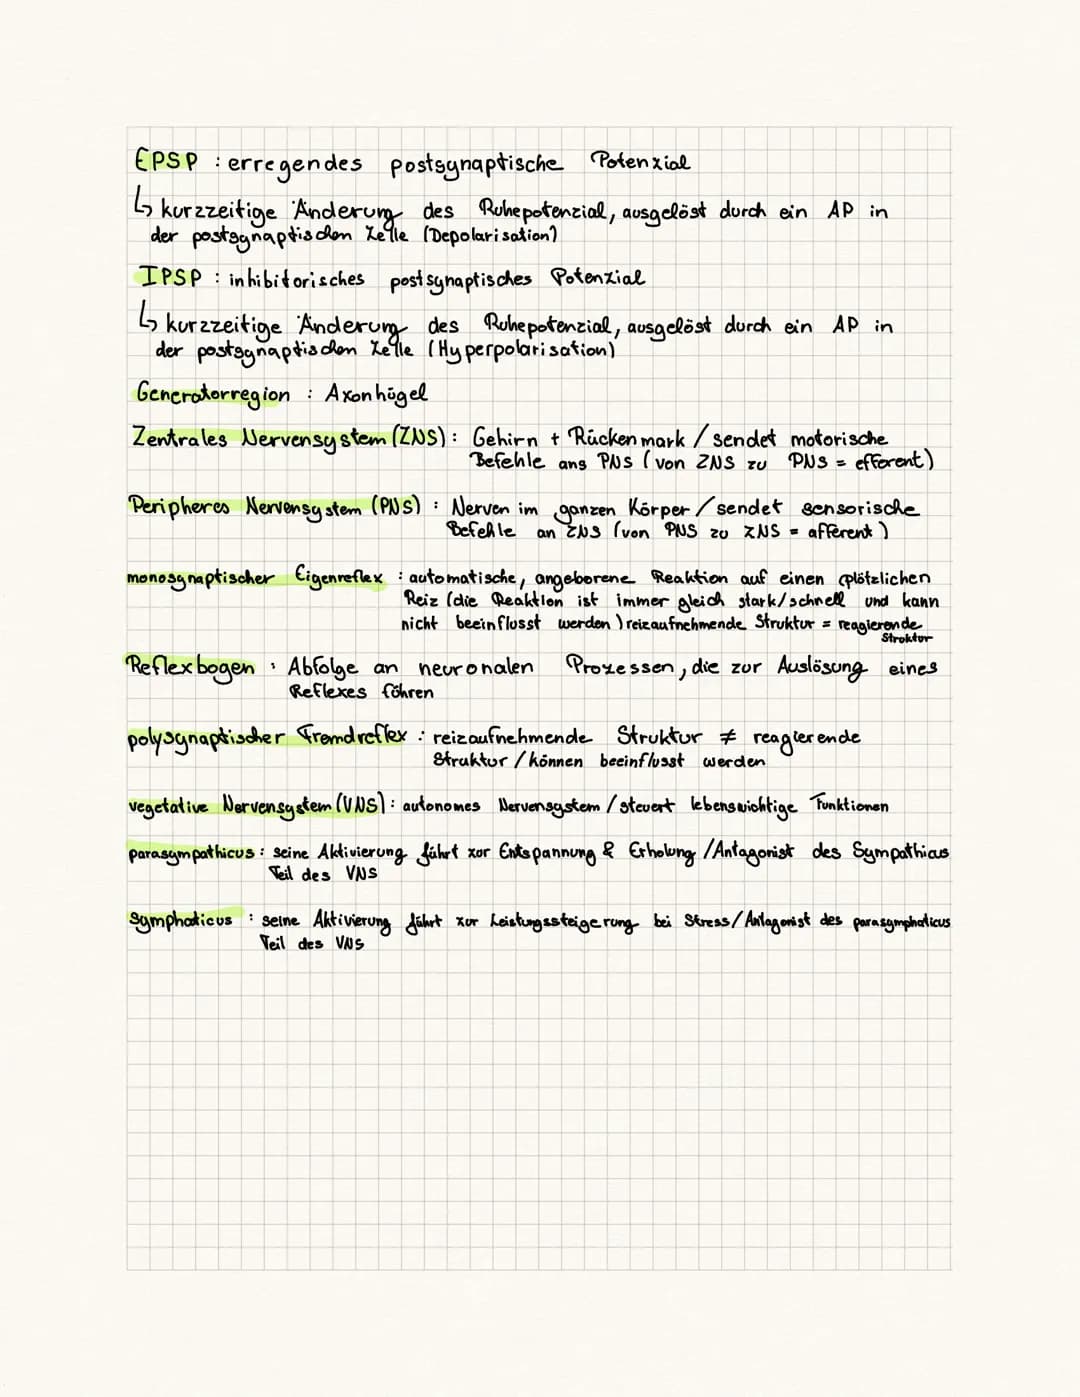 EPSP : erregendes postsynaptische Potenzial
↳ kurzzeitige Änderung des Ruhepotenzial, ausgelöst durch ein AP in
der postsynaptischen Zelle (Depolarisation)
IPSP : inhibitorisches postsynaptisches Potenzial
↳ kurzzeitige Änderung des Ruhepotenzial, ausgelöst durch ein AP in
der postsynaptischen Zelle (Hyperpolarisation)
Generatorregion : Axonhügel
Zentrales Nervensystem (ZNS) : Gehirn + Rückenmark / sendet motorische
Befehle ans PNS (von ZNS zu PNS = efferent)
Peripheres Nervensystem (PNS) : Nerven im ganzen Körper / sendet sensorische
Befehle an ZNS (von PNS zu ZNS = afferent)
monosynaptischer Eigenreflex : automatische, angeborene Reaktion auf einen plötzlichen
Reiz (die Reaktion ist immer gleich stark/schnell und kann
nicht beeinflusst werden) reizaufnehmende Struktur = reagierende
Struktur
Reflexbogen : Abfolge an neuronalen Prozessen, die zur Auslösung eines
Reflexes führen
polysynaptischer Fremdreflex : reizaufnehmende Struktur ≠ reagierende
Struktur / können beeinflusst werden
vegetative Nervensystem (VNS) : autonomes Nervensystem / steuert lebenswichtige Funktionen
parasympathicus : seine Aktivierung führt zur Entspannung & Erholung / Antagonist des Sympathicus
Teil des VNS
Symphaticus : seine Aktivierung führt zur Leistungssteigerung bei Stress / Antagonist des parasymphaticus
Teil des VNS